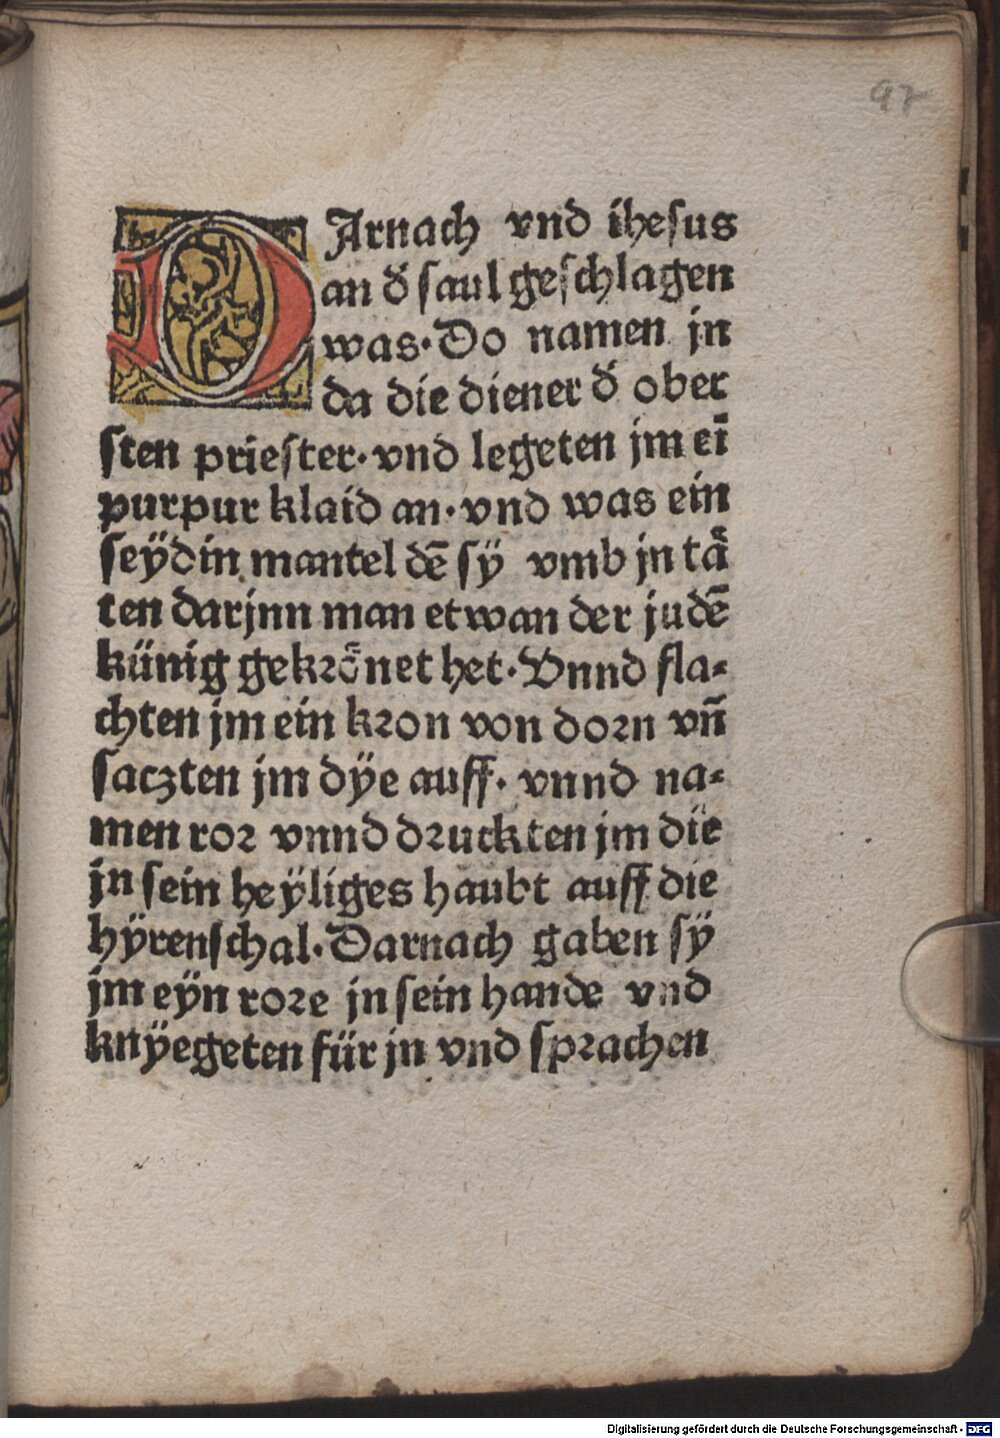 97
DArnach vnd ihesus
an d̄ saul geschlagen
was·Do namen jn
da die diener d̄ ober
sten priester·vnd legeten jm eī
purpur klaid an·vnd was ein
seÿdin mantel dē sÿ vmb jn tā
ten darjnn man etwan der judē
künig gekrȫnet het·Vnnd fla⸗
chten jm ein kron von dorn vn̄
saczten jm dÿe auff· vnnd na⸗
men ror vnnd druckten jm die
jn sein heÿliges haubt auff die
hÿrenschal·Darnach gaben sÿ
jm eÿn rore jn sein hande vnd
knÿegeten für jn vnd sprachen
Digitalisierung gefördert durch die Deutsche Forschungsgemeinschaft - DFG